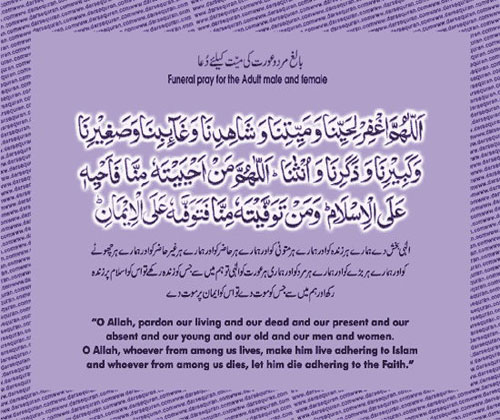 بالغ مرد و عورت کی میت کیلئے دُعا
Funeral pray for the Adult male and female
اَللّٰهُمَّ اغْفِرْ لِحَيِّنَا وَ مَيِّتِنَا وَ شَاهِدِنَا وَ غَآئِبِنَا وَ صَغِيْرِنَا
وَ كَبِيْرِنَا وَ ذَكَرِنَا وَ اُنْثَنَا ، اَللّٰهُمَّ مَنْ اَحْيَيْتَهٗ مِنَّا فَاَحْيِهٖ
عَلَى الْاِسْلَامِ وَ مَنْ تَوَفَّيْتَهٗ مِنَّا فَتَوَفَّهٗ عَلَى الْاِيْمَانِ
الٰہی بخش دے ہمارے ہر زندہ کو اور ہمارے ہر متوفی کو اور ہمارے ہر حاضر کو اور ہمارے ہر غیر حاضر کو اور ہمارے ہر چھوٹے
کو اور ہمارے ہر بڑے کو اور ہمارے ہر مرد کو اور ہماری ہر عورت کو الٰہی تو ہم میں سے جس کو زندہ رکھے تو اس کو اسلام پر زندہ
رکھ اور ہم میں سے جس کو موت دے تو اس کو ایمان پر موت دے
“O Allah, pardon our living and our dead and our present and our
absent and our young and our old and our men and women.
O Allah, whoever from among us lives, make him live adhering to Islam
and whoever from among us dies, let him die adhering to the Faith.”
www.darsequran.com